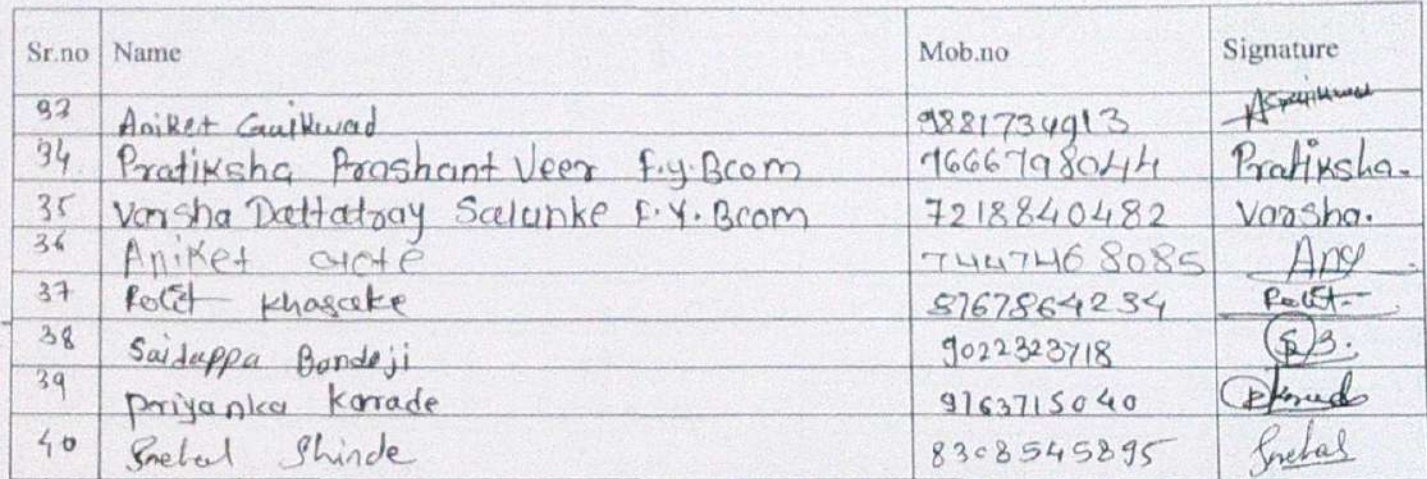 Sr.no Name Mob.no Signature
33 Aniket Gaikwad 9881734913
34 Pratiksha Prashant Veer F.y.Bcom 7666798044 Pratiksha.
35 Varsha Dattatray Salunke F.Y.Bcom 7218840482 Varsha.
36 Aniket 7447468085
37 Khasake 8767864234
38 Saiduppa Bandeji 9022323718 S B.
39 Priyanka Karade 9763715040
40 Snehal Shinde 8308545895 Snehal